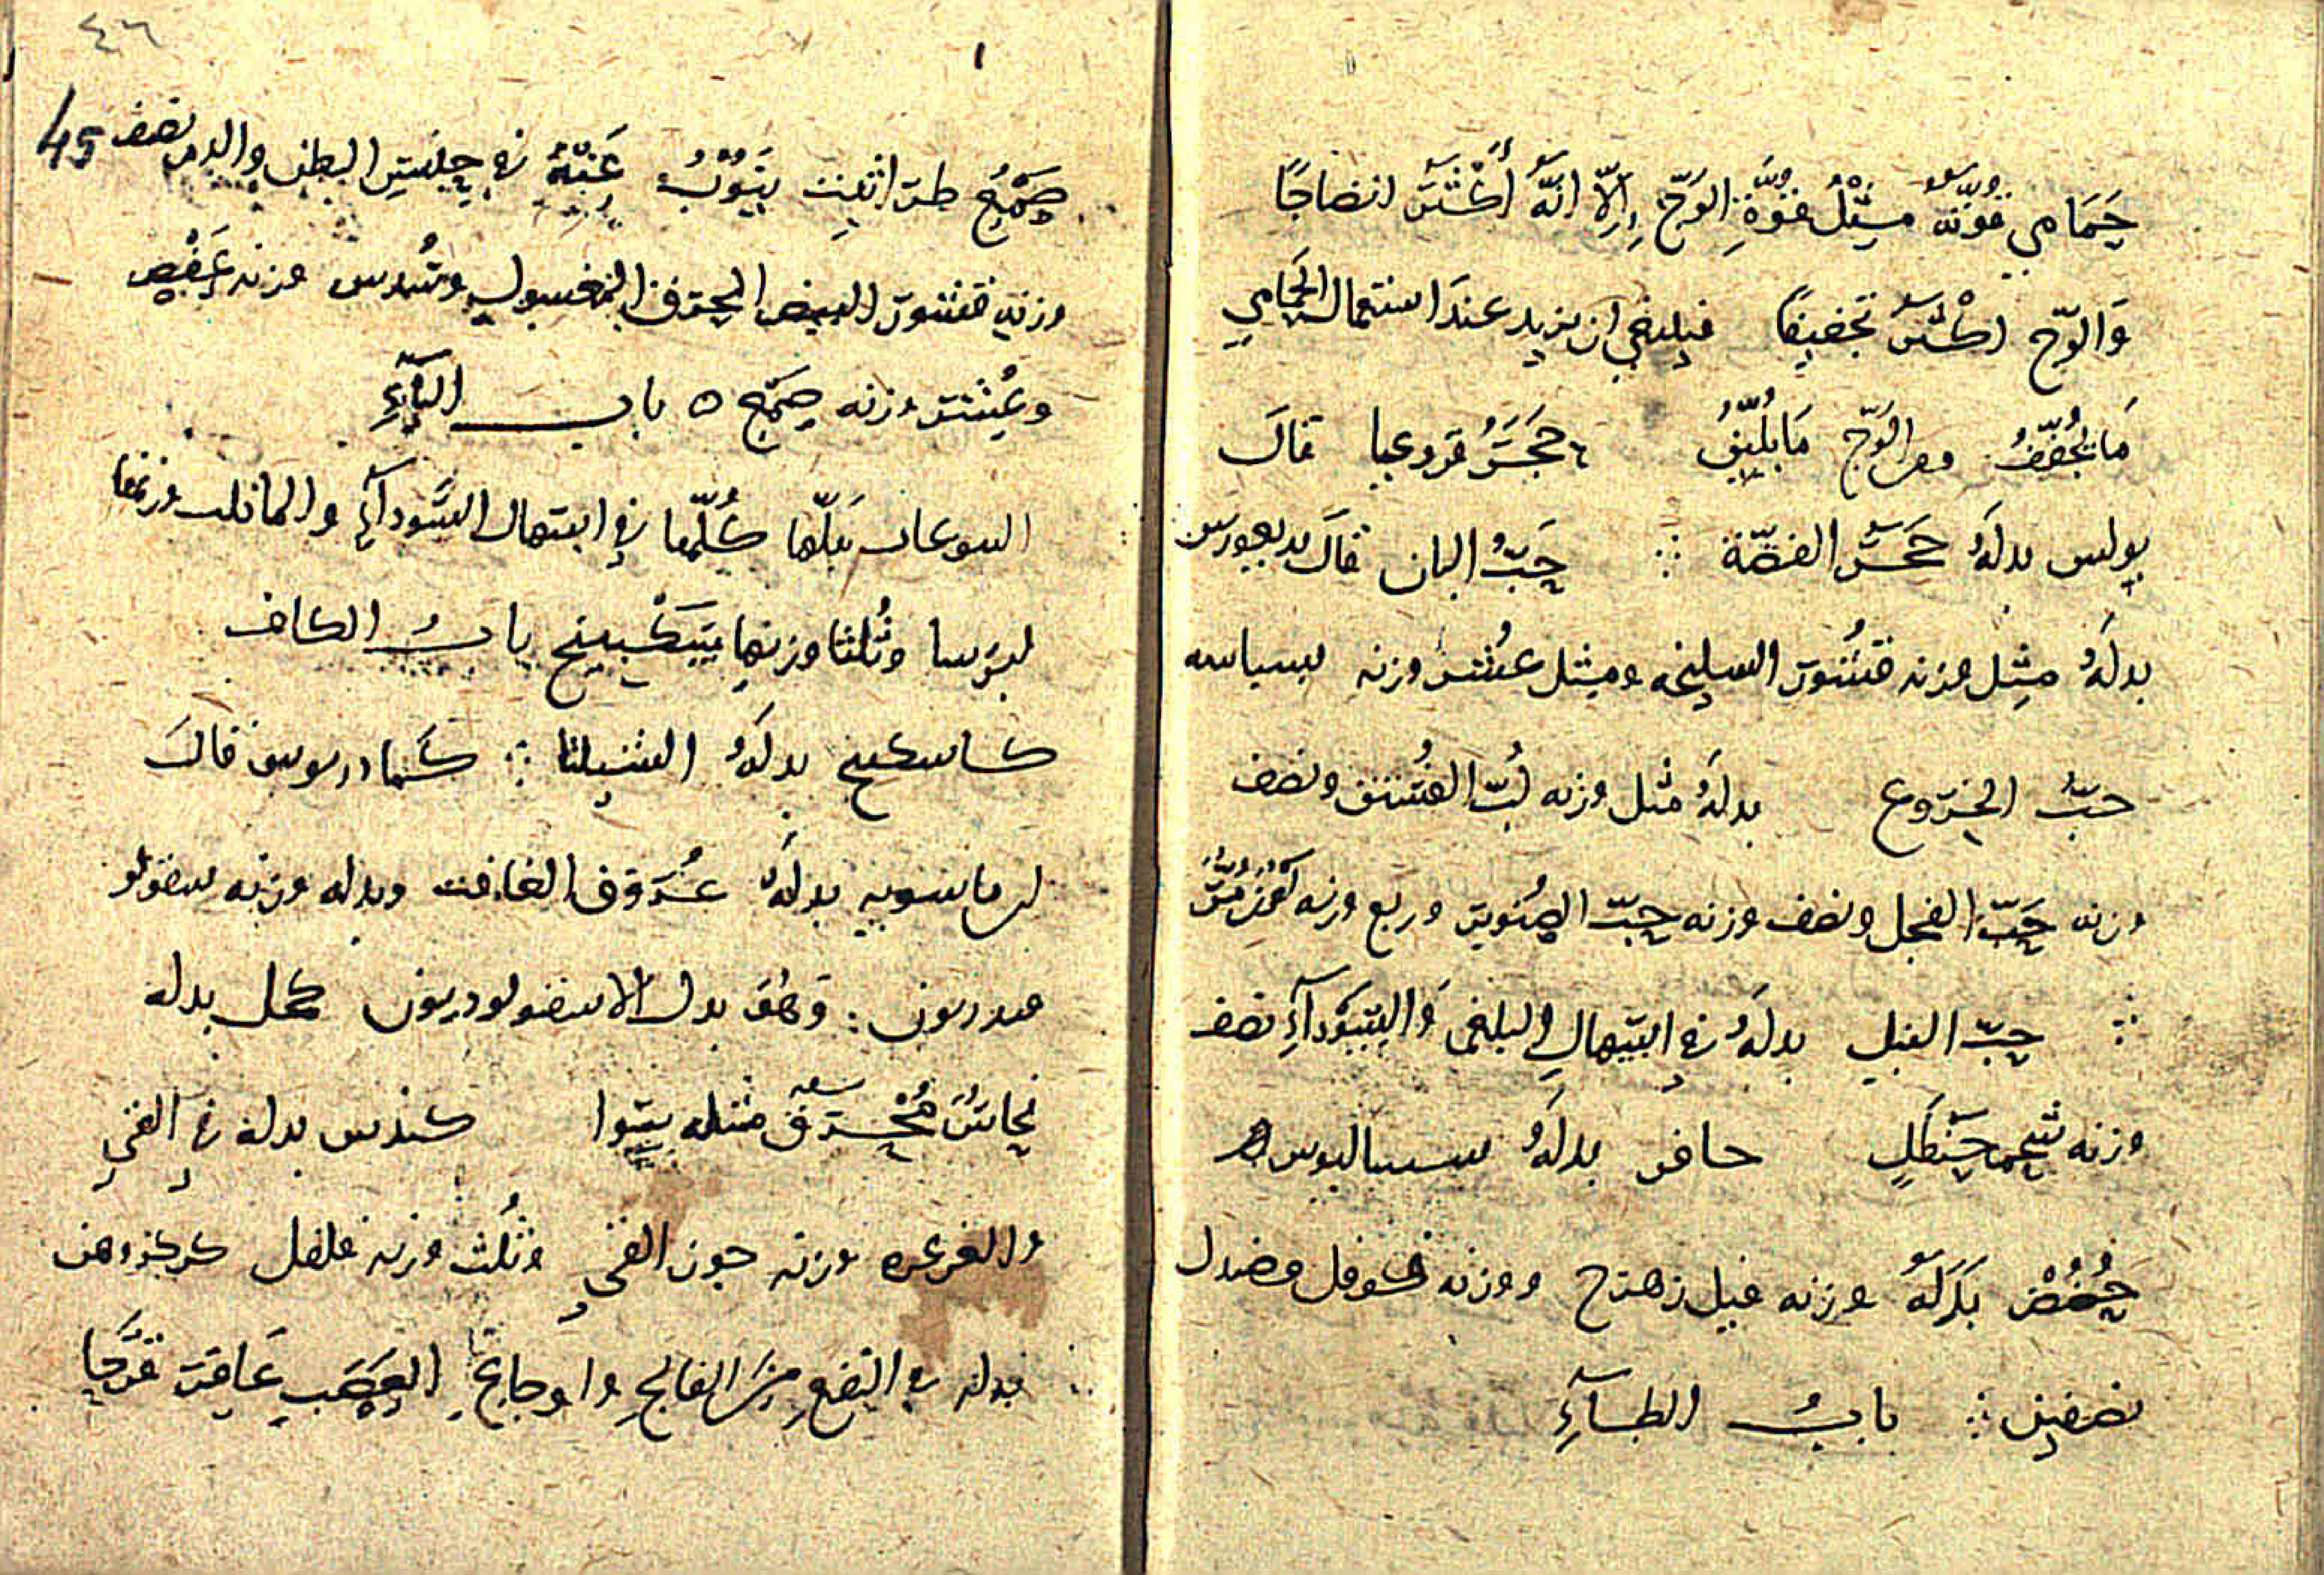 حَمَامي قوّته مِثْلُ قوّةِ الوَجّ إِلّا انّهُ أكْثَرُ انضاجًا
وَالوَجّ اكْثرُ تجفيفًا فينبغي ان يزيد عندَ استعمال الحَمَامي
مَا يُجفّفُ ومع الوَجّ مَا يُليّنُ حَجَرُ قال
بولس بدلهُ حَجَرُ الفضّة ∴ حَبُّ البان قالَ بديغورس
بدلهُ مِثل وزنه قشُور السليخه ومثل عُشر وزنه بسباسه
حبُّ الخِرْوع بدلهُ مثل وزنه لُبّ الفُستق ونصف
وزنه حَبّ الفجل ونصف وزنه حبّ الصنوبر وربع وزنه لَوْز مُرّ
∴ حبّ النيل بدلهُ في اسهال البلغم وَالسّوْدآءِ نصف
وزنه شحم حَنظَلٍ حافر بدلهُ
حُضُضْ بَدَلهُ وزنه فيل زهرج ووزنه فوفل وصندل
نصفين ∴ بابُ الطآءِ
٤٦
45
صَمْغ طراثيث يَنُوْبُ عَنهُ في حبس البطن والدم نصف
وزنه قشور البيض المحرق المغسول وسُدس وزنه عَفْص
وعُشر وزنه صمغ ه باب اليآءِ
اليتوعات بَدَلها كُلّها في اسهال السَّودآءِ والمائية وزنها
ايرسا وثُلثا وزنها سَكْبينج بابُ الكاف
كاسكبينج بدلهُ ∴ كمادريوس قالَ
ابن ماسويه بدلهُ عُرُوق الغافت وبدله وزنه سقولو
قندريون : وَهُوَ بدل الاسقولوقندريون كحل بدله
نحاسٌ مُحْرَق مثله سوا كندس بدله في القي
والغرغره وزنه جوز القي وثُلث وزنه فلفل كركروهن
بدله في النفع مِنَ الفالج واوجاع العصَب عَاقر قَرْحا